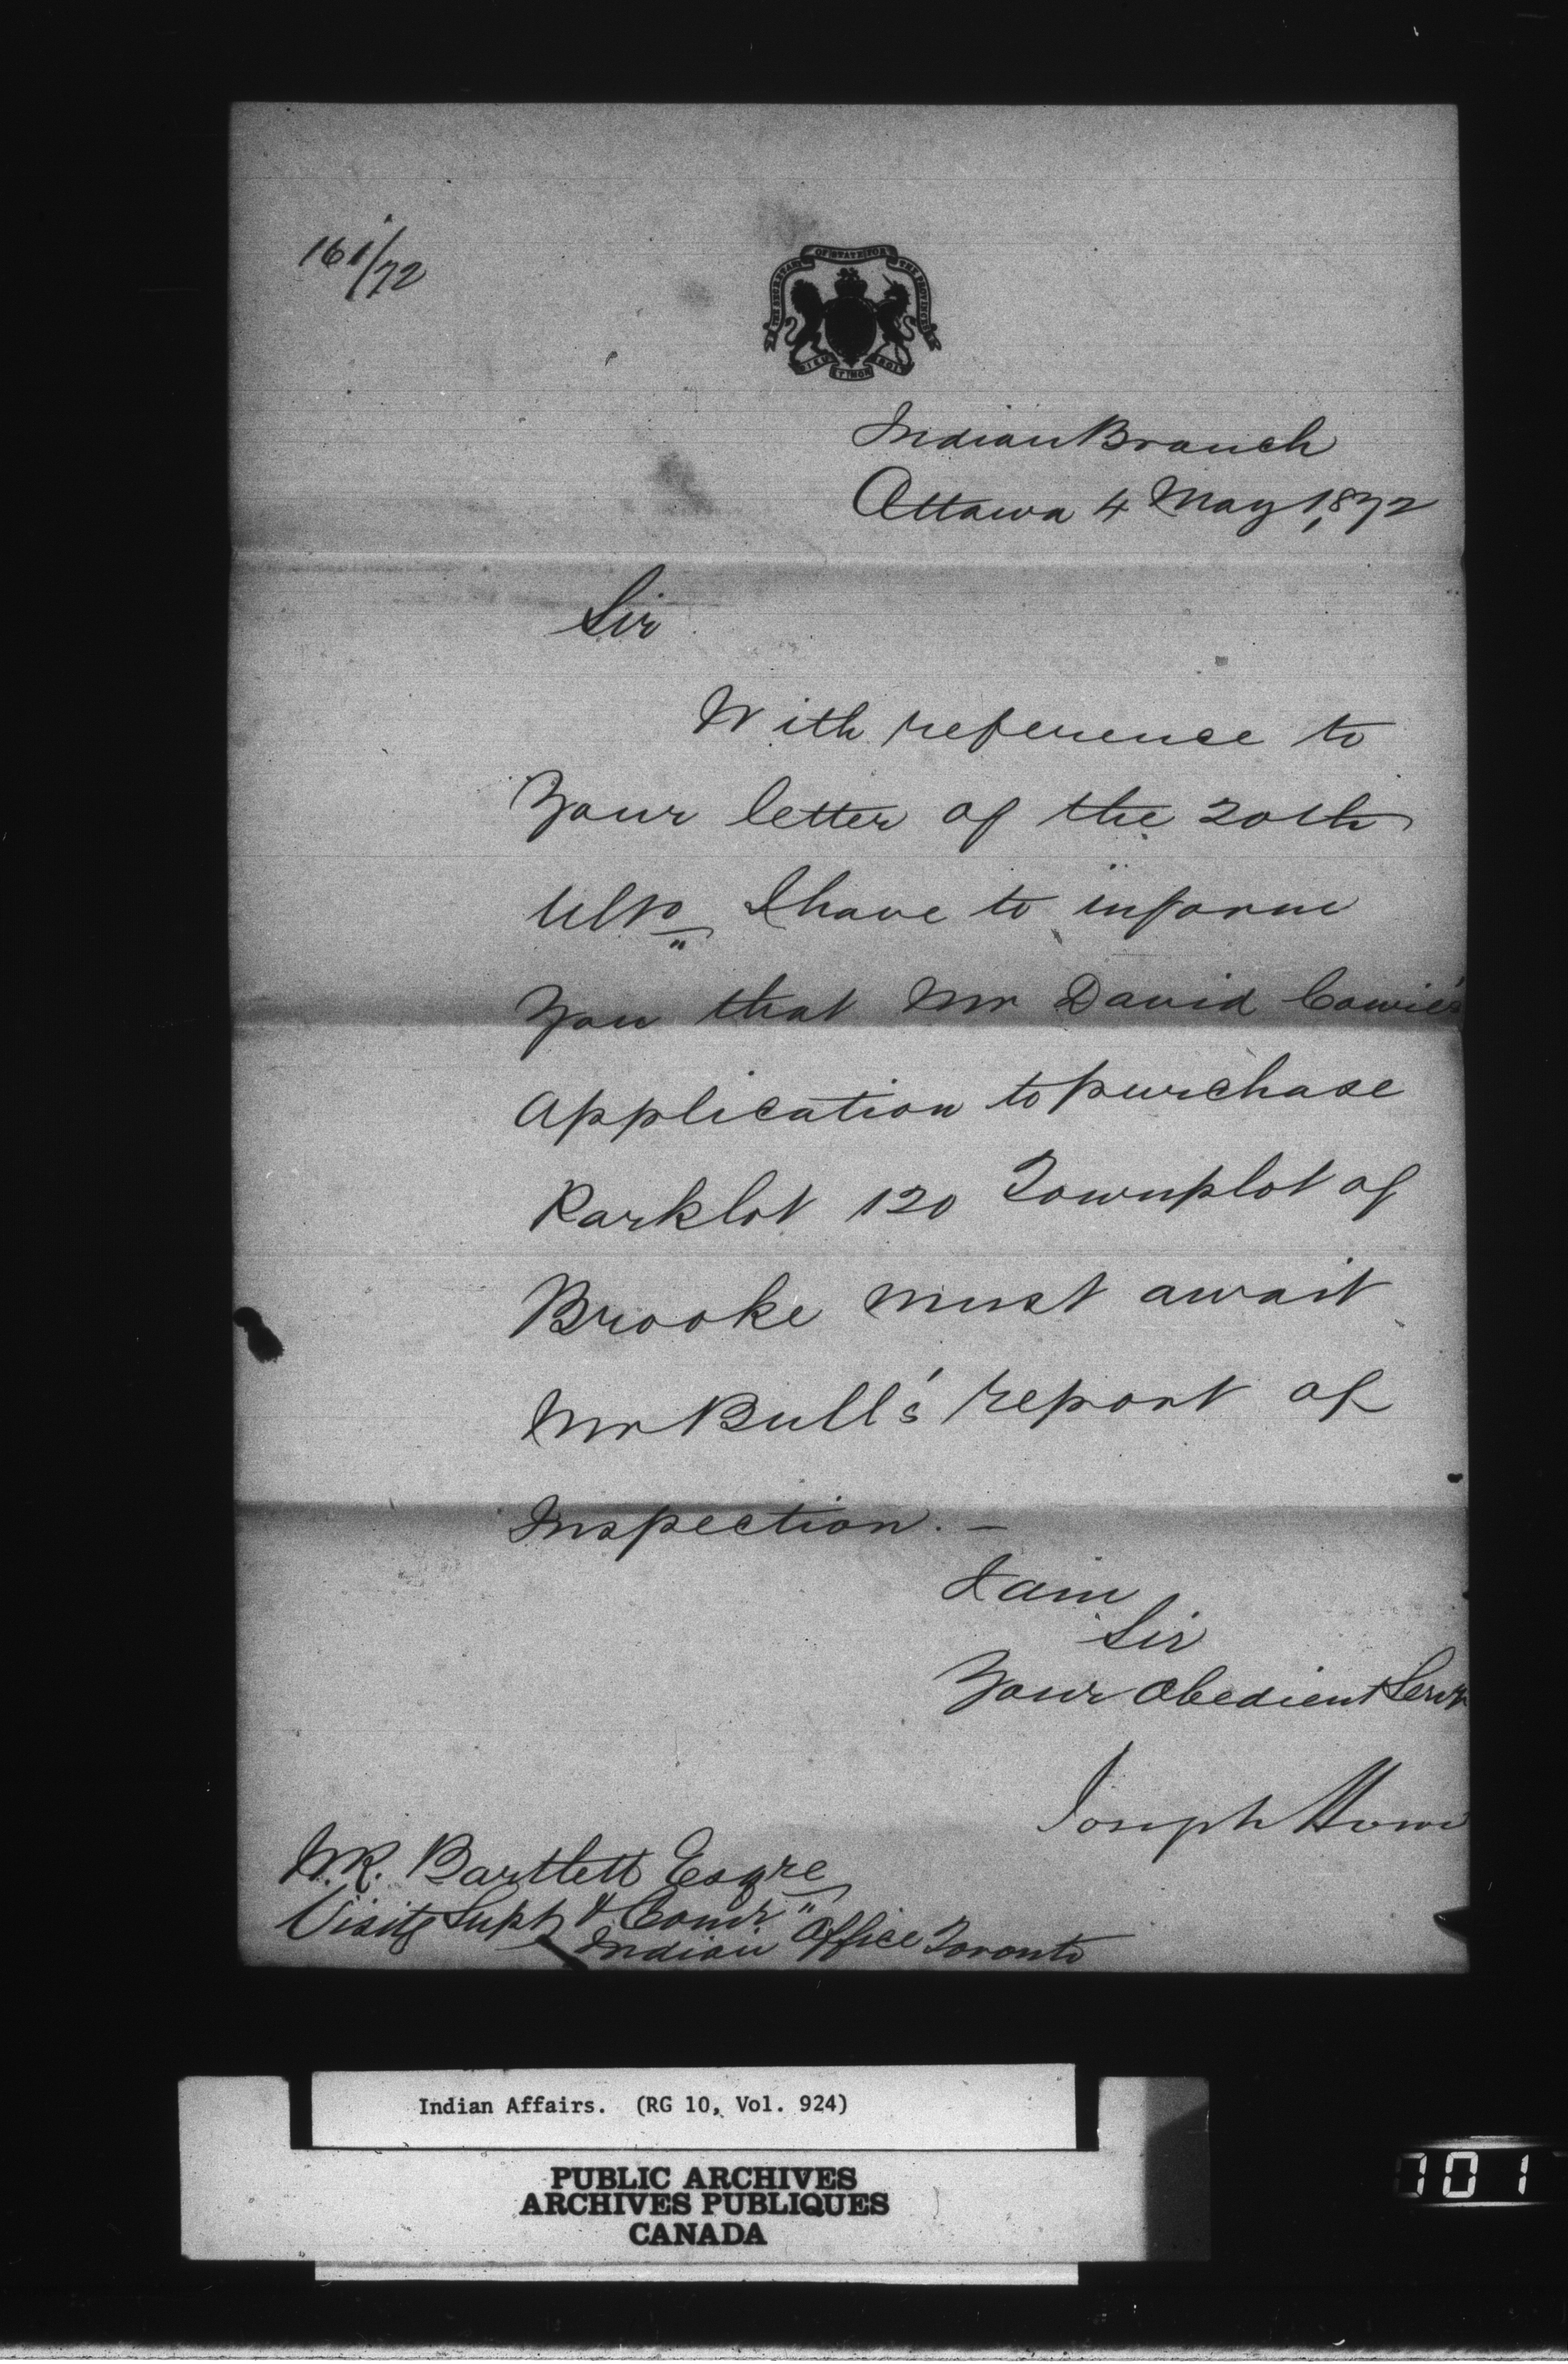 161/72
THE SECRETARY OF STATE FOR THE PROVINCES
DIEU ET MON DROIT
Indian Branch
Ottawa 4 May 1872
Sir
With reference to
Your letter of the 20th
Ulto I have to inform
You that Mr David Cowie's
Application to purchase
Parklot 120 Townplot of
Brooke must await
Mr Bull's report of
Inspection. —
I am
Sir
Your Obedient Servt
Joseph Howe
W.R. Bartlett Esqre
Visitg Supt & Comr
Indian Office Toronto
Indian Affairs. (RG 10, Vol. 924)
PUBLIC ARCHIVES
ARCHIVES PUBLIQUES
CANADA
101